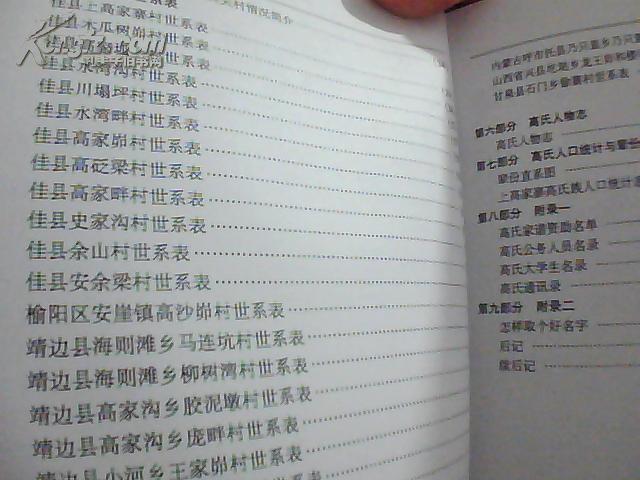 佳县上高家寨村世系表
佳县木瓜树峁村世系表
佳县水湾沟村世系表
佳县川塌坪村世系表
佳县水湾畔村世系表
佳县高家峁村世系表
佳县高砭梁村世系表
佳县高家畔村世系表
佳县史家沟村世系表
佳县余山村世系表
佳县安余梁村世系表
榆阳区安崖镇高沙峁村世系表
靖边县海则滩乡马连坑村世系表
靖边县海则滩乡柳树湾村世系表
靖边县高家沟乡胶泥墩村世系表
靖边县高家沟乡庞畔村世系表
靖边县小河乡王家峁村世系表
第六部分 高氏人物志
高氏人物志
第七部分 高氏人口统计与
支份直系图
上高家寨高氏族人口统计
第八部分 附录一
高氏家谱资助名单
高氏公务人员名录
高氏大学生名录
高氏通讯录
第九部分 附录二
怎样取个好名字
后记
续后记